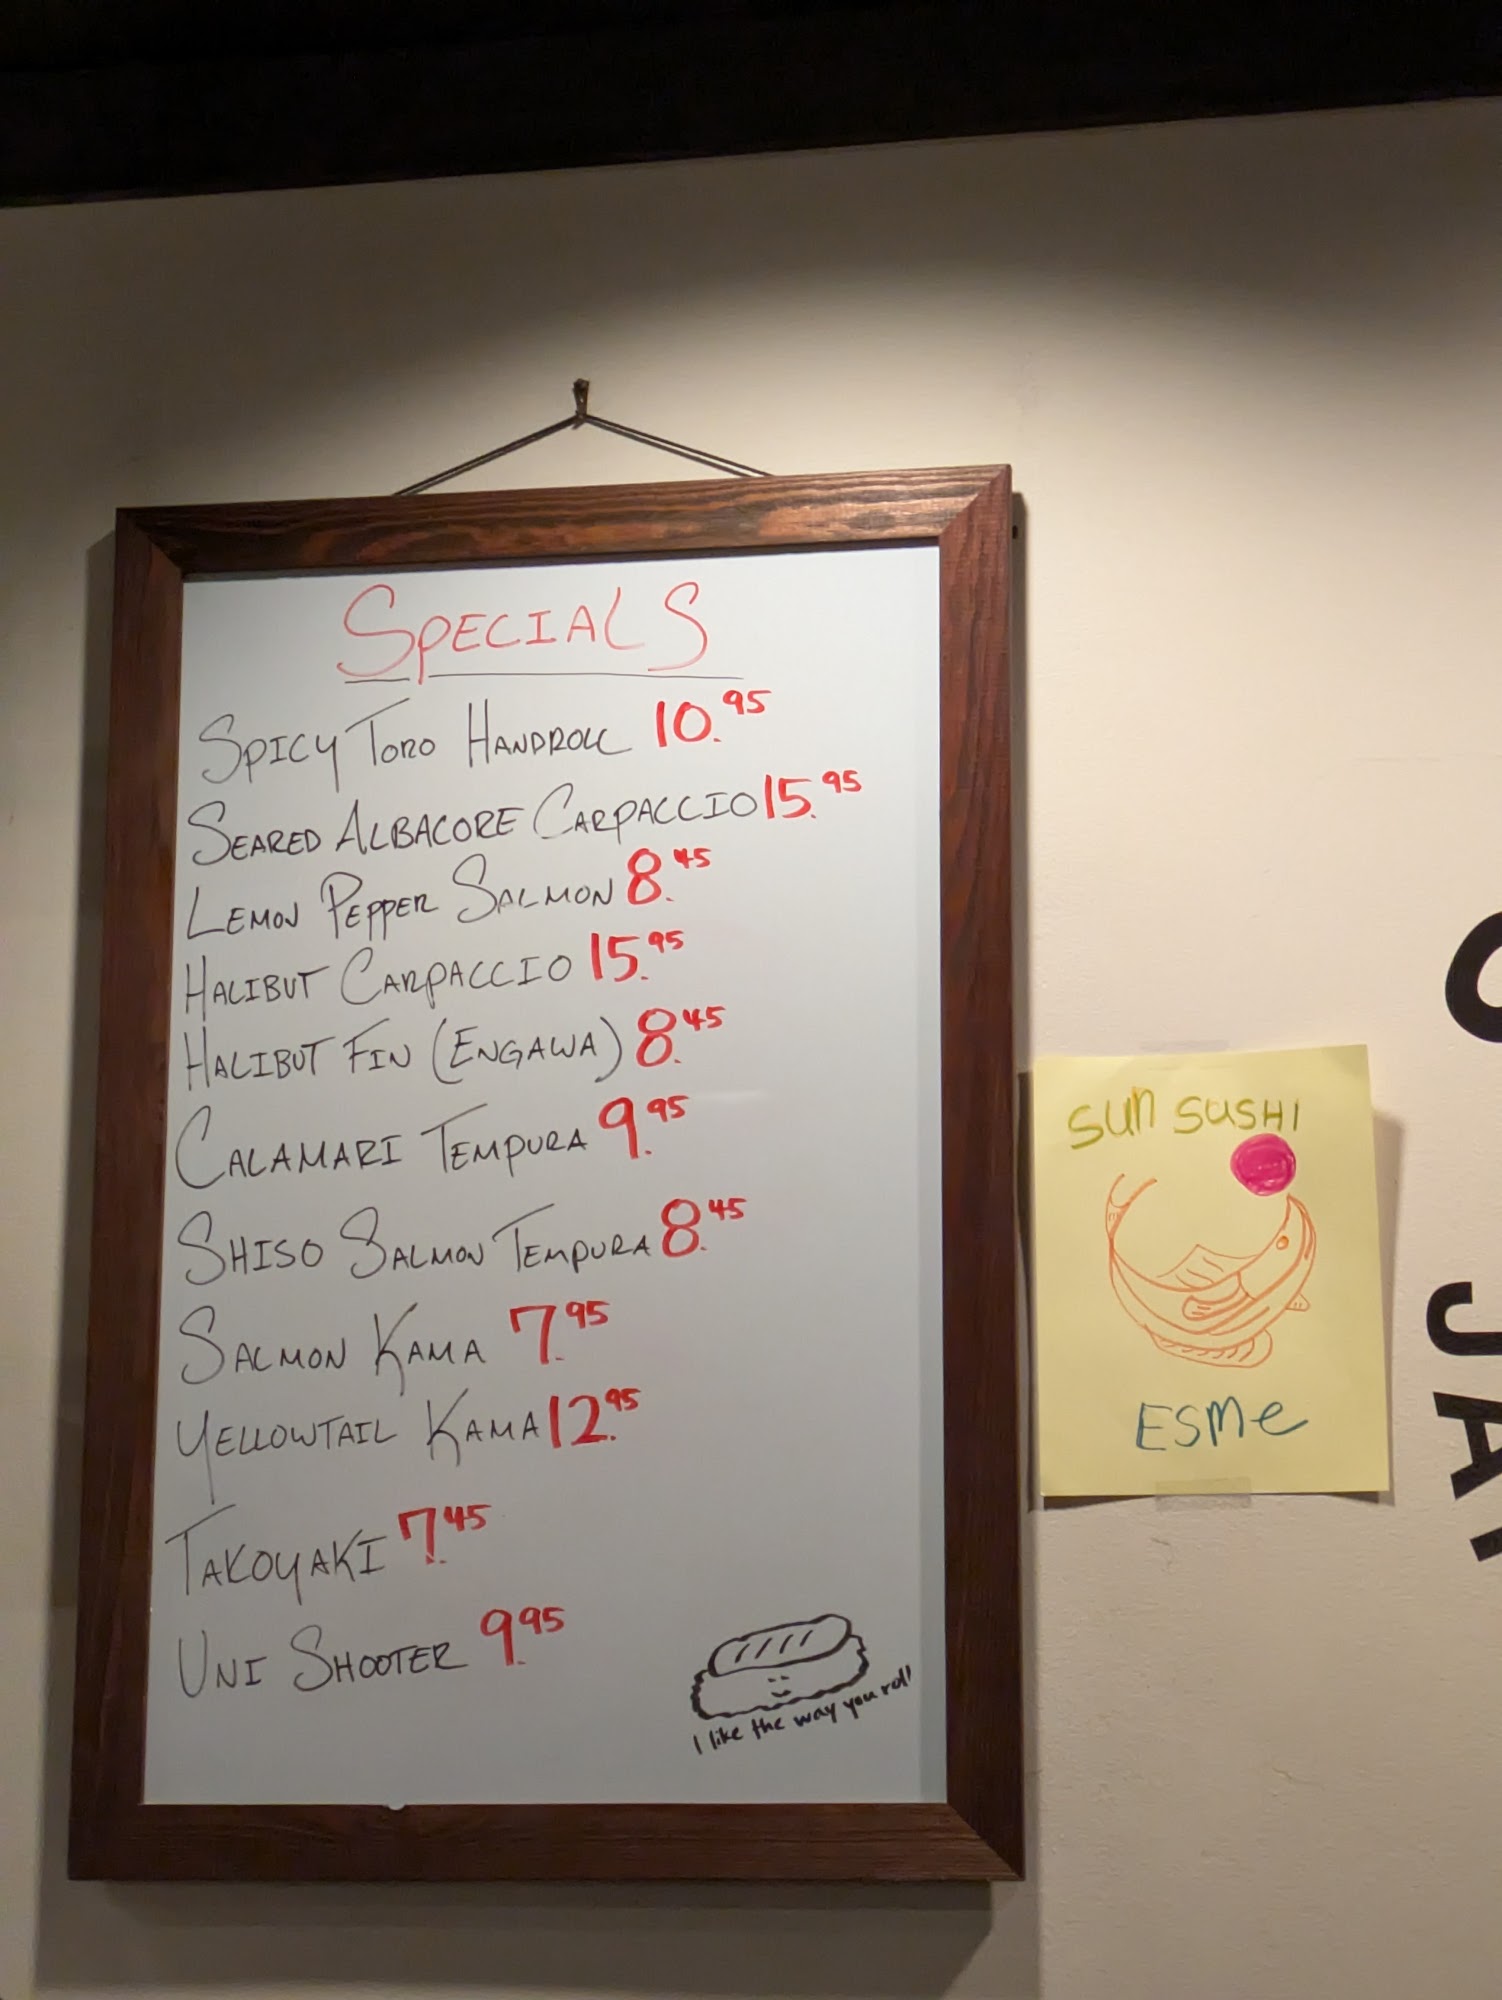 SPECIALS
SPICY TORO HANDROLL 10.95
SEARED ALBACORE CARPACCIO 15.95
LEMON PEPPER SALMON 8.45
HALIBUT CARPACCIO 15.95
HALIBUT FIN (ENGAWA) 8.45
CALAMARI TEMPURA 9.95
SHISO SALMON TEMPURA 8.45
SALMON KAMA 7.95
YELLOWTAIL KAMA 12.95
TAKOYAKI 7.45
UNI SHOOTER 9.95
I like the way you roll
sun SuSHI
ESMe